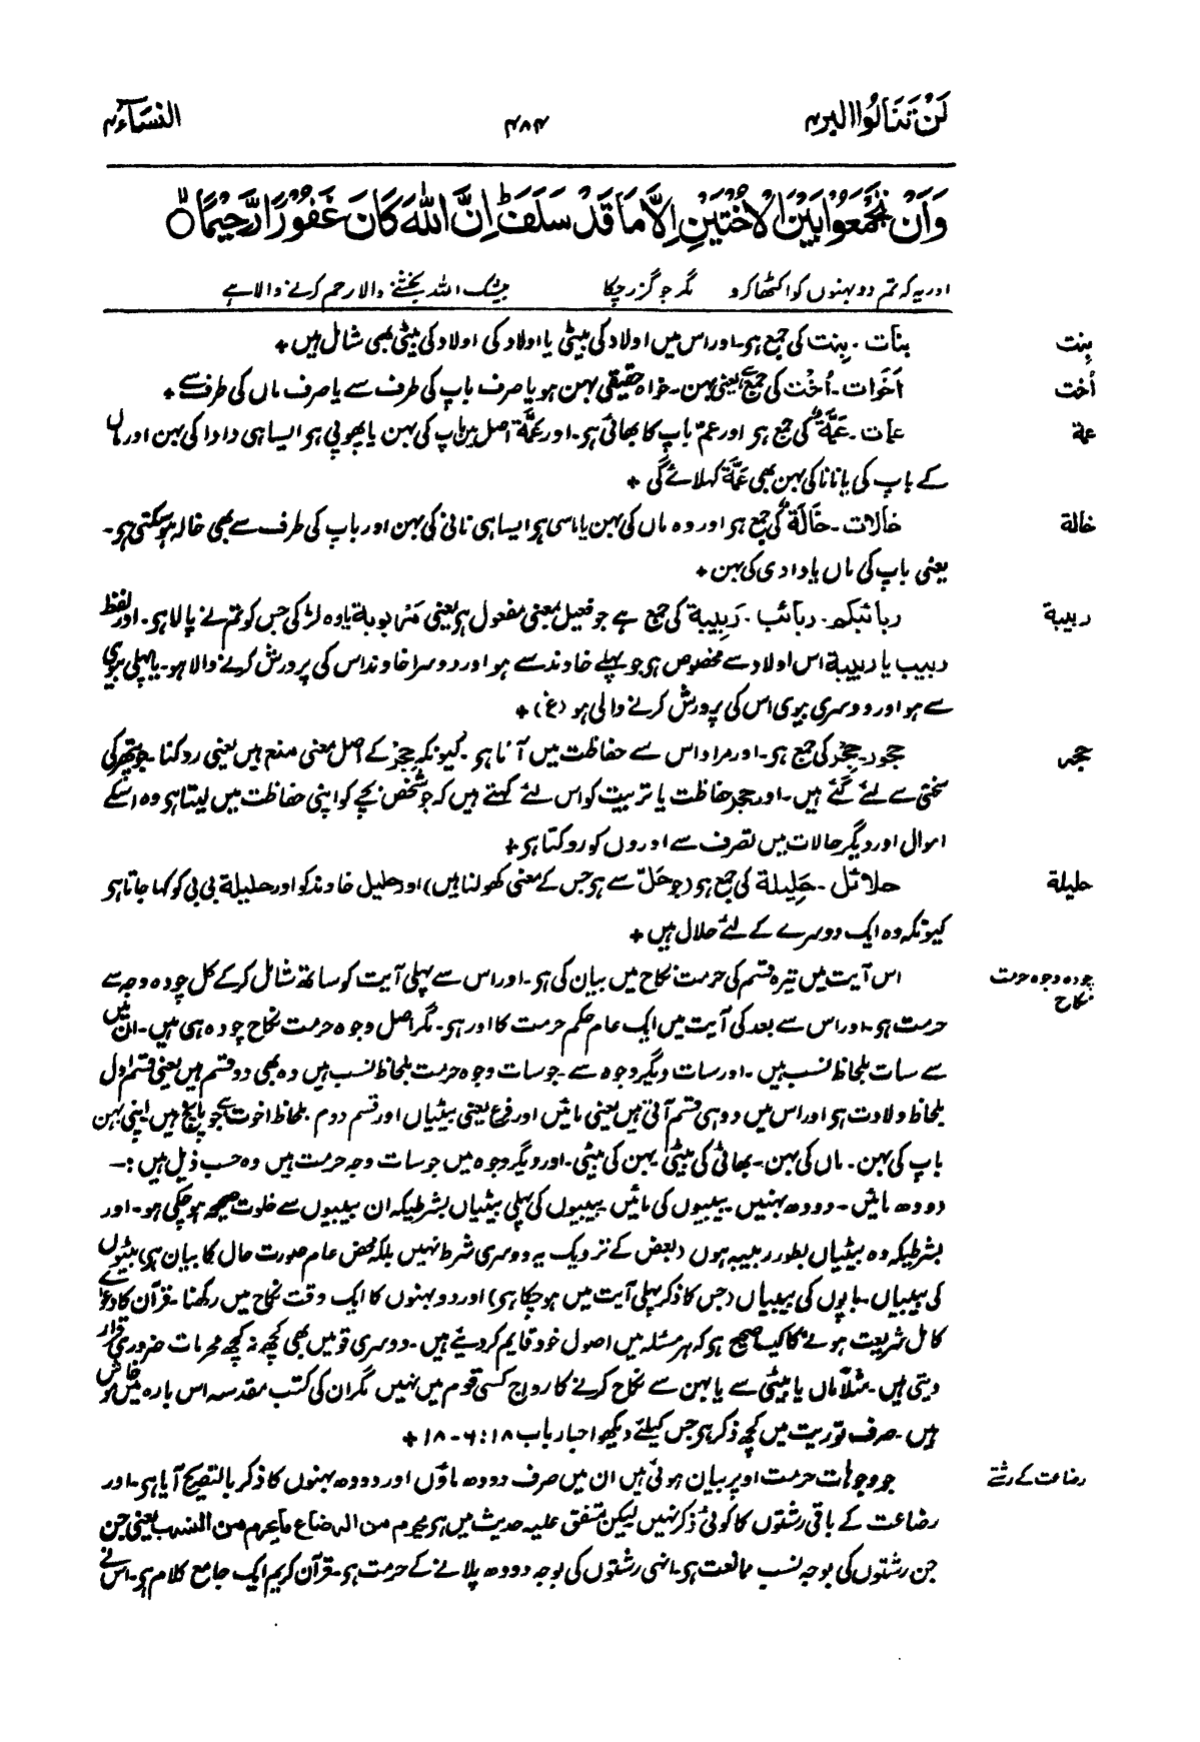 لَنْ تَنَالُوا البر۴
۴۸۴
النسَآء۴
وَاَنْ تَجْمَعُوْا بَيْنَ الْاُخْتَيْنِ اِلَّا مَا قَدْ سَلَفَ ؕ اِنَّ اللّٰهَ كَانَ غَفُوْرًا رَّحِيْمًا ۙ
اور یہ کہ تم دو بہنوں کو اکٹھا کرو مگر جو گزر چکا بیشک اللہ بخشنے والا رحم کرنے والا ہے
بِنت
بنات۔ بِنت کی جمع ہو۔ اور اس میں اولاد کی بیٹی یا اولاد کی اولاد کی بیٹی بھی شامل ہیں +
اُخت
اَخَوات۔ اُخْت کی جمع ہے یعنی بہن۔ خواہ حقیقی بہن ہو یا صرف باپ کی طرف سے یا صرف ماں کی طرف سے +
عمة
عمات۔ عَمَّة کی جمع ہو اور عمّ باپ کا بھائی ہو۔ اور عَمَّة اصل میں باپ کی بہن یا پھوپی ہو ایسا ہی دادا کی بہن اور ماں
کے باپ کی یا نانا کی بہن بھی عَمَّة کہلائے گی +
خالة
خالات۔ خَالَة کی جمع ہو اور وہ ماں کی بہن یا ماسی ہو ایسا ہی نانی کی بہن اور باپ کی طرف سے بھی خالہ ہو سکتی ہو۔
یعنی باپ کی ماں یا دادی کی بہن +
ربيبة
ربائبکم۔ ربائب۔ رَبِيبة کی جمع ہے جو فعیل بمعنی مفعول ہو یعنی مَرْبوبة یا وہ لڑکی جس کو تم نے پالا ہو۔ اور لفظ
ربیب یا ربیبة اس اولاد سے مخصوص ہو جو پہلے خاوند سے ہو اور دوسرا خاوند اس کی پرورش کرنے والا ہو۔ یا پہلی بیوی
سے ہو اور دوسری بیوی اس کی پرورش کرنے والی ہو (غ) +
حجر
حجور۔ حِجْر کی جمع ہو۔ اور مراد اس سے حفاظت میں آنا ہو۔ کیونکہ حِجْر کے اصل معنی منع ہیں یعنی روکنا۔ جو پتھر کی
سختی سے لئے گئے ہیں۔ اور حجر حفاظت یا تربیت کو اس لئے کہتے ہیں کہ جو شخص بچے کو اپنی حفاظت میں لیتا ہو وہ اسکے
اموال اور دیگر حالات میں تصرف سے اوروں کو روکتا ہو +
حليلة
حلائل۔ حَلِيلة کی جمع ہو (جو حَلّ سے ہو جس کے معنی کھولنا ہیں) اور حلیل خاوند کو اور حلیلة بی بی کو کہا جاتا ہو
کیونکہ وہ ایک دوسرے کے لئے حلال ہیں +
چودہ وجوہ حرمت
نکاح
اس آیت میں تیرہ قسم کی حرمت نکاح میں بیان کی ہو۔ اور اس سے پہلی آیت کو ساتھ شامل کر کے کل چودہ وجہ سے
حرمت ہو۔ اور اس سے بعد کی آیت میں ایک عام حکم حرمت کا اور ہو۔ مگر اصل وجوہ حرمت نکاح چودہ ہی ہیں۔ ان میں
سے سات بلحاظ نسب ہیں۔ اور سات دیگر وجوہ سے۔ جو سات وجوہ حرمت بلحاظ نسب ہیں وہ بھی دو قسم ہیں یعنی قسم اول
بلحاظ ولادت ہو اور اس میں دو ہی قسم آتی ہیں یعنی مائیں اور فرع یعنی بیٹیاں اور قسم دوم بلحاظ اخوت ہے جو پانچ ہیں اپنی بہن
باپ کی بہن۔ ماں کی بہن۔ بھائی کی بیٹی۔ بہن کی بیٹی۔ اور دیگر وجوہ میں جو سات وجہ حرمت ہیں وہ حسب ذیل ہیں :۔
دودھ مائیں۔ دودھ بہنیں بیبیوں کی مائیں بیبیوں کی پہلی بیٹیاں بشرطیکہ ان بیبیوں سے خلوت صحیحہ ہو چکی ہو۔ اور
بشرطیکہ وہ بیٹیاں بطور ربیبہ ہوں (بعض کے نزدیک یہ دوسری شرط نہیں بلکہ محض عام صورت حال کا بیان ہو) بیٹوں
کی بیبیاں۔ باپوں کی بیبیاں (جس کا ذکر پہلی آیت میں ہو چکا ہو) اور دو بہنوں کا ایک وقت نکاح میں رکھنا۔ قرآن کا دعوےٰ
کامل شریعت ہونے کا کیسا صحیح ہو کہ ہر مسئلہ میں اصول خود قایم کر دیئے ہیں۔ دوسری قومیں بھی کچھ نہ کچھ محرمات ضروری قرار
دیتی ہیں۔ مثلاً ماں یا بیٹی سے یا بہن سے نکاح کرنے کا رواج کسی قوم میں نہیں مگر ان کی کتب مقدسہ اس بارہ میں خاموش
ہیں۔ صرف توریت میں کچھ ذکر ہو جس کیلئے دیکھو احبار باب ۱۸:۶۔۱۸ +
رضاعت کے رشتے
جو وجوہات حرمت اوپر بیان ہوئی ہیں ان میں صرف دودھ ماؤں اور دودھ بہنوں کا ذکر بالتصریح آیا ہو۔ اور
رضاعت کے باقی رشتوں کا کوئی ذکر نہیں لیکن متفق علیہ حدیث میں ہو یحرم من الرضاع ما یحرم من النسب یعنی جن
جن رشتوں کی بوجہ نسب ممانعت ہو۔ انہی رشتوں کی بوجہ دودھ پلانے کے حرمت ہو۔ قرآن کریم ایک جامع کلام ہو۔ اس نے